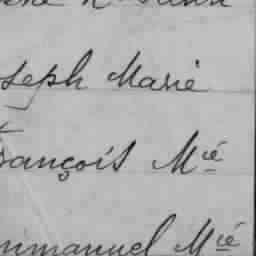 oseph Marie
rançois Mié
mmanuel Mié